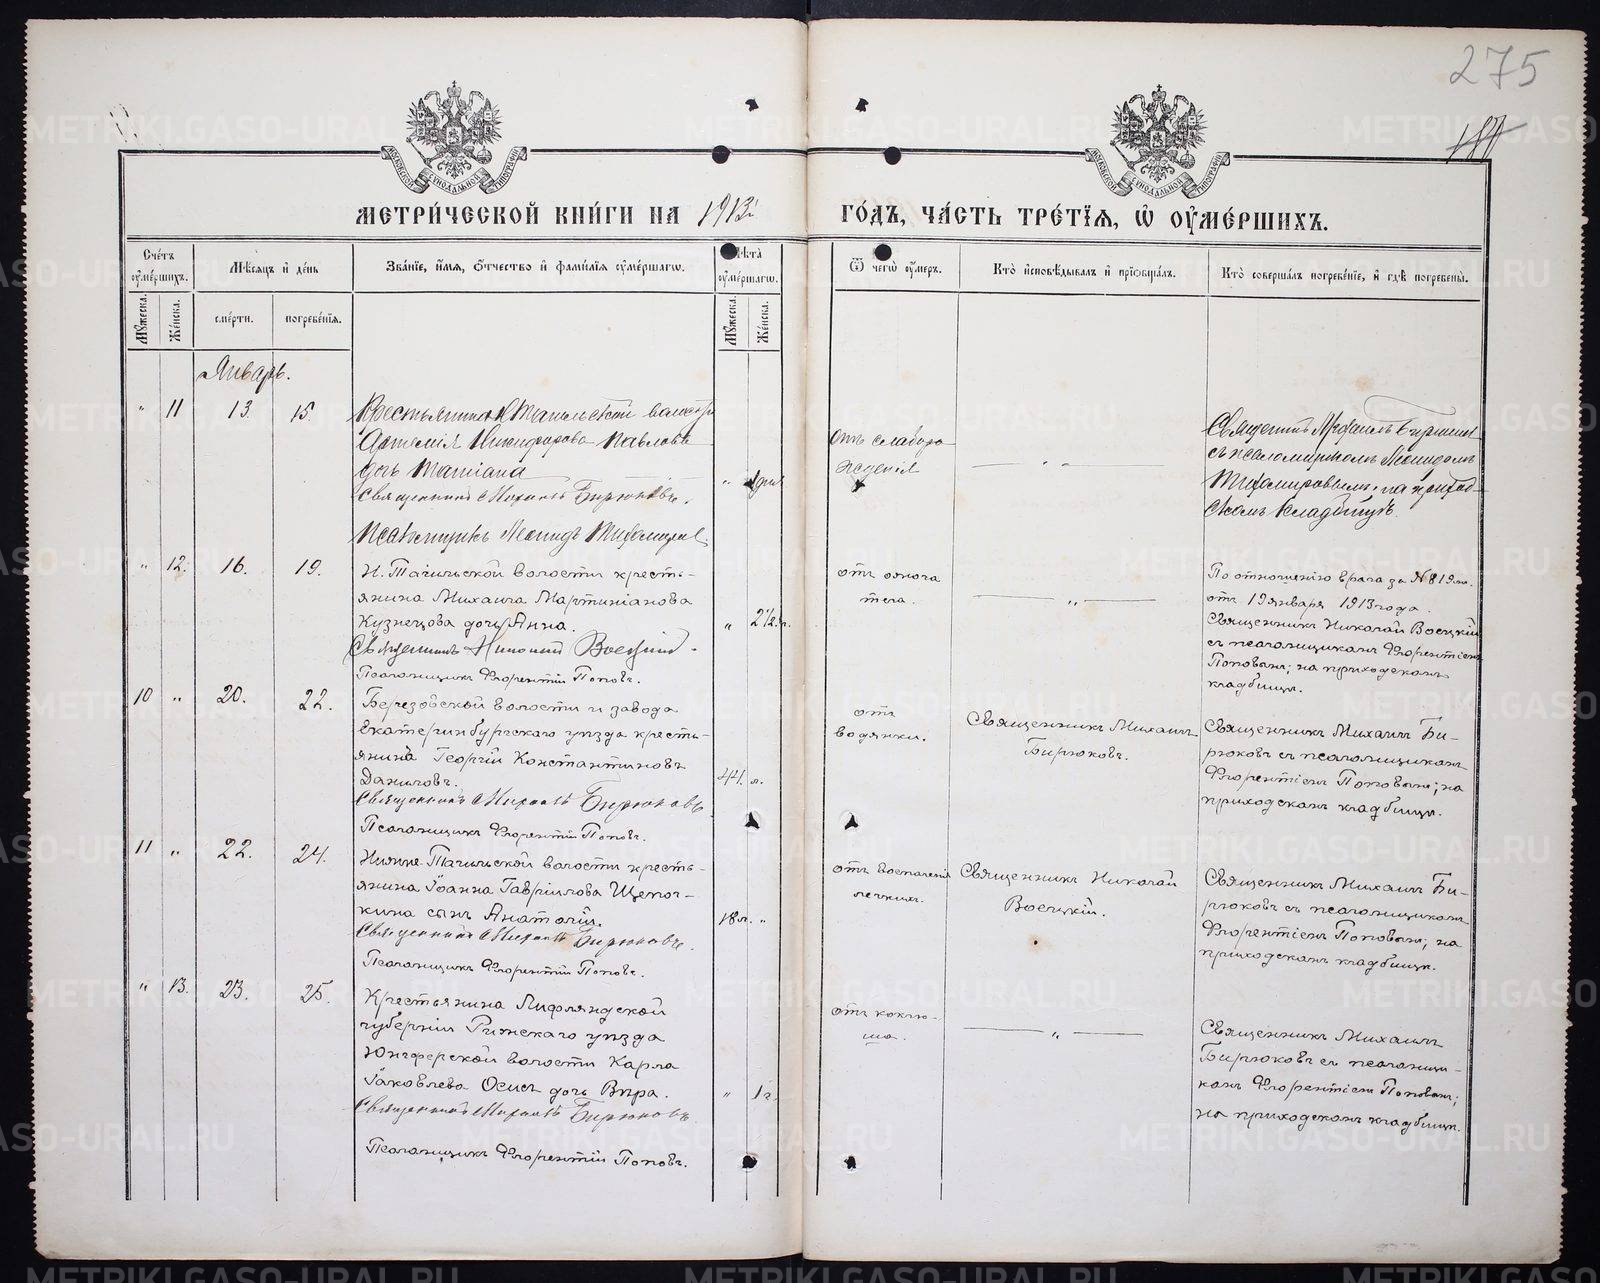 275
МЕТРИ́ЧЕСКОЙ КНИ́ГИ НА 1913 ГО́ДЪ, ЧА́СТЬ ТРЕ́ТІЯ, Ѡ ОУМЕ́РШИХЪ.
Сче́тъ оуме́ршихъ.
Мѣ́сяцъ и де́нь
Зва́нїе, и́мя, ѻ҆́тчество и фамилїя оуме́ршагѡ.
Лѣ́та оуме́ршагѡ.
Ѿ чегѡ̀ оу́меръ.
Кто̀ исповѣ́дывалъ и прїѡбща́лъ.
Кто̀ соверша́лъ погребе́нїе, и гдѣ̀ погребены̀.
Мꙋ́жеска.
Же́нска.
сме́рти.
погребе́нїя.
Мꙋ́жеска.
Же́нска.
Январь.
" 11 13. 15.
Крестьянина Н Тагильской волости
Артемія Никифорова Павлова
дочь Татіана
Священникъ Михаилъ Бирюковъ.
Псаломщикъ Леонидъ Тихомировъ
отъ слаборо
жденія
Священникъ Михаилъ Бирюковъ
съ псаломщикомъ Леонидомъ
Тихомировымъ, на приход-
скомъ кладбищѣ.
" 12. 16. 19.
Н. Тагильской волости кресть-
янина Михаила Мартиніанова
Кузнецова дочь Анна.
Священникъ Николай Воецкій.
Псаломщикъ Флорентій Поповъ.
" 2½ г.
отъ ожога
тела.
По отношенію врача за № 819
отъ 19 января 1913 года.
Священникъ Николай Воецкій
съ псаломщикомъ Флорентіемъ
Поповымъ; на приходскомъ
кладбищѣ.
10 " 20. 22.
Березовской волости и завода
Екатеринбургскаго уѣзда кресть-
янинъ Георгій Константиновъ
Даниловъ.
Священникъ Михаилъ Бирюковъ.
Псаломщикъ Флорентій Поповъ.
44. л.
отъ
водянки.
Священникъ Михаилъ
Бирюковъ.
Священникъ Михаилъ Би-
рюковъ съ псаломщикомъ
Флорентіемъ Поповымъ; на
приходскомъ кладбищѣ.
11 " 22. 24.
Нижне-Тагильской волости кресть-
янина Іоанна Гавріилова Щепоч-
кина сынъ Анатолій.
Священникъ Михаилъ Бирюковъ.
Псаломщикъ Флорентій Поповъ.
18 л. "
отъ воспаленія
легкихъ.
Священникъ Николай
Воецкій.
Священникъ Михаилъ Би-
рюковъ съ псаломщикомъ
Флорентіемъ Поповымъ; на
приходскомъ кладбищѣ.
" 13. 23. 25.
Крестьянина Лифляндской
губерніи Рижскаго уѣзда
Юнгферской волости Карла
Іаковлева Осисъ дочь Вѣра.
Священникъ Михаилъ Бирюковъ.
Псаломщикъ Флорентій Поповъ.
" 1 г.
отъ коклю-
ша.
Священникъ Михаилъ
Бирюковъ съ псаломщи-
комъ Флорентіемъ Поповымъ;
на приходскомъ кладбищѣ.
METRIKI.GASO-URAL.RU